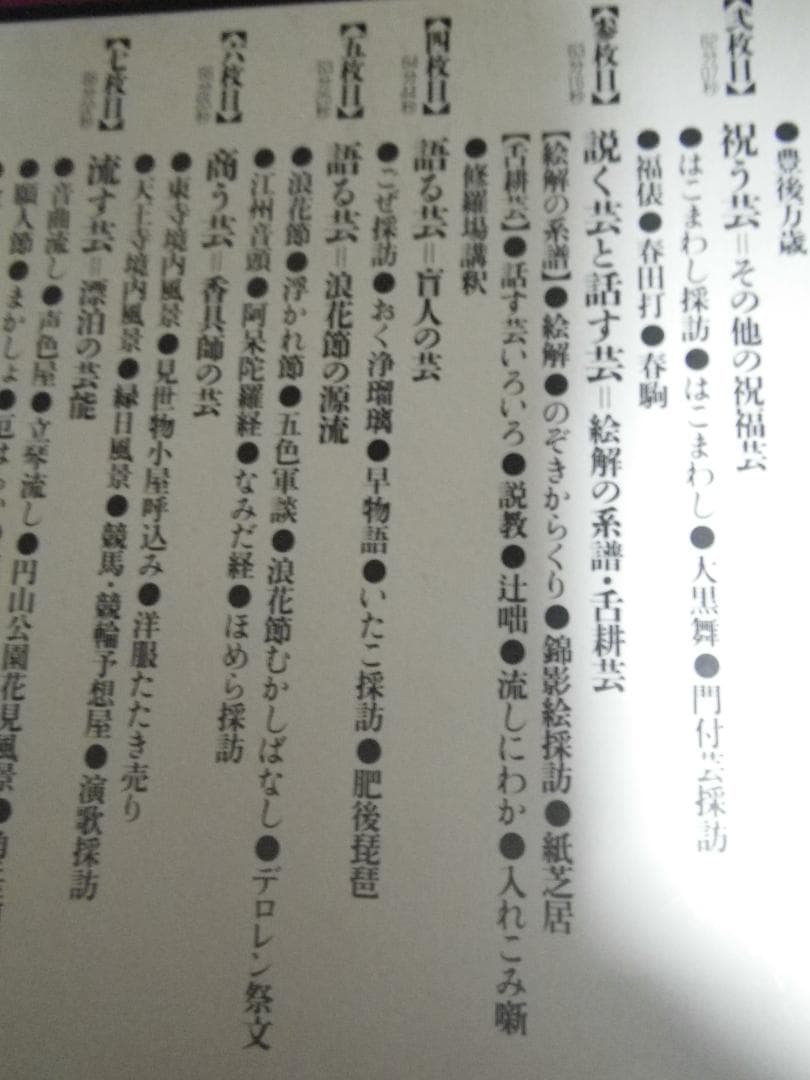 ●豊後万歳
【弐枚目】
祝う芸＝その他の祝福芸
●はこまわし採訪●はこまわし●大黒舞●門付芸採訪
●福俵●春田打●春駒
【参枚目】
説く芸と話す芸＝絵解の系譜・舌耕芸
【絵解の系譜】●絵解●のぞきからくり●錦影絵採訪●紙芝居
【舌耕芸】●話す芸いろいろ●説教●辻咄●流しにわか●入れこみ噺
●修羅場講釈
【四枚目】
語る芸＝盲人の芸
●ごぜ採訪●おく浄瑠璃●早物語●いたこ採訪●肥後琵琶
【五枚目】
語る芸＝浪花節の源流
●浪花節●浮かれ節●五色軍談●浪花節むかしばなし●デロレン祭文
●江州音頭●阿呆陀羅経●なみだ経●ほめら採訪
【六枚目】
商う芸＝香具師の芸
●東寺境内風景●見世物小屋呼込み●洋服たたき売り
●天王寺境内風景●縁日風景●競馬・競輪予想屋●演歌採訪
【七枚目】
流す芸＝漂泊の芸能
●音曲流し●声色屋●立琴流し●円山公園花見風景●
●願人節●まかしょ●